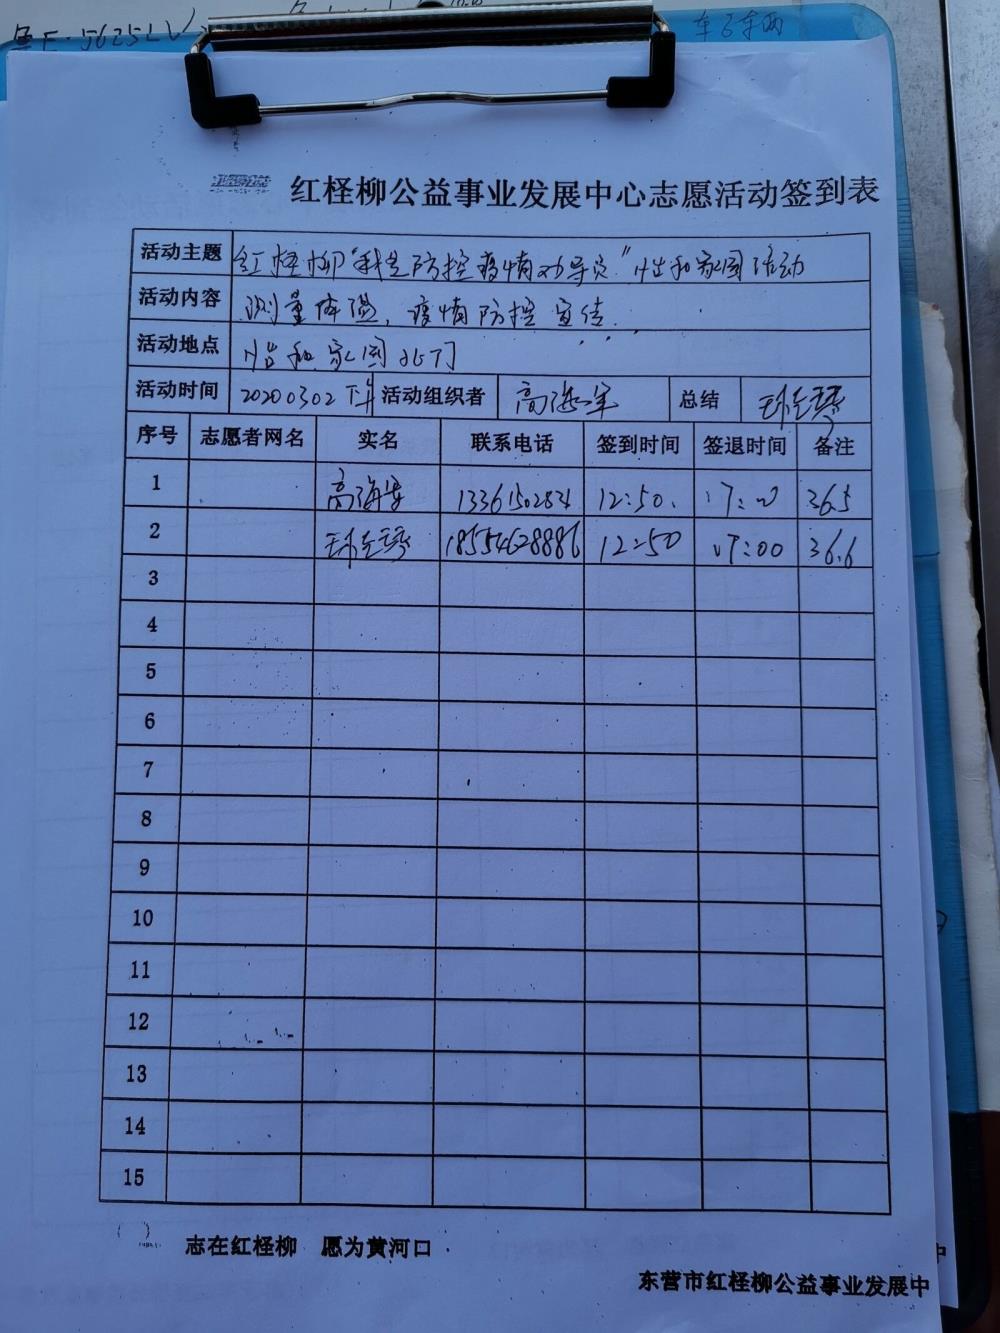 红柽柳公益事业发展中心志愿活动签到表
活动主题 红柽柳"我是防控疫情劝导员"怡和家园活动
活动内容 测量体温，疫情防控宣传.
活动地点 怡和家园北门
活动时间 20200302下午 活动组织者 高海军 总结
序号 志愿者网名 实名 联系电话 签到时间 签退时间 备注
1 高海军 12:50. 17:00 36.5
2 18554628886 12:50 17:00 36.6
3
4
5
6
7
8
9
10
11
12
13
14
15
志在红柽柳 愿为黄河口
东营市红柽柳公益事业发展中